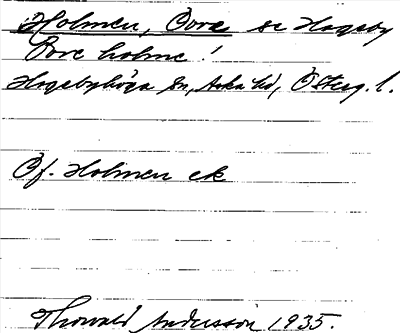 Holmen, Övre se Hageby
Övre holme!
Hagebyhöga sn, Aska hd, Österg.l.
Jf. Holmen ek
Thorwald Andersson 1935.